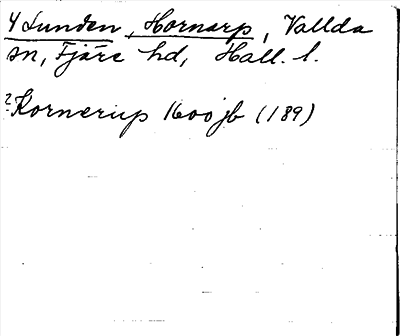 4 Lunden, Hornarp, Vallda
sn, Fjäre hd, Hall. l.
? Kornerup 1600 jb (189)